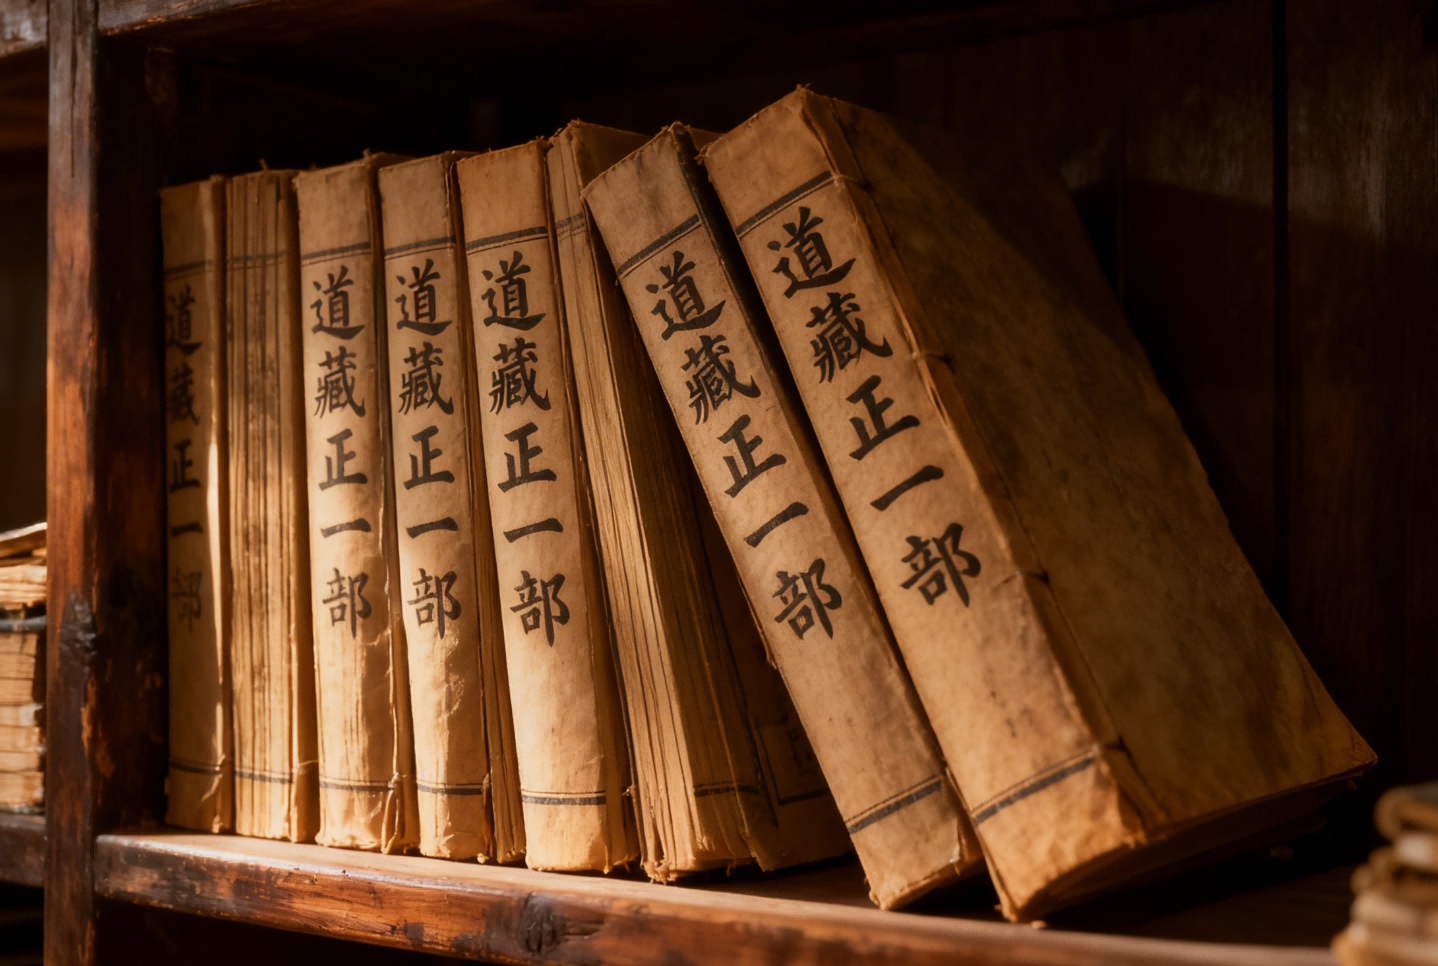 道藏正一部
道藏正一部
道藏正一部
道藏正一部
道藏正一部
道藏正一部